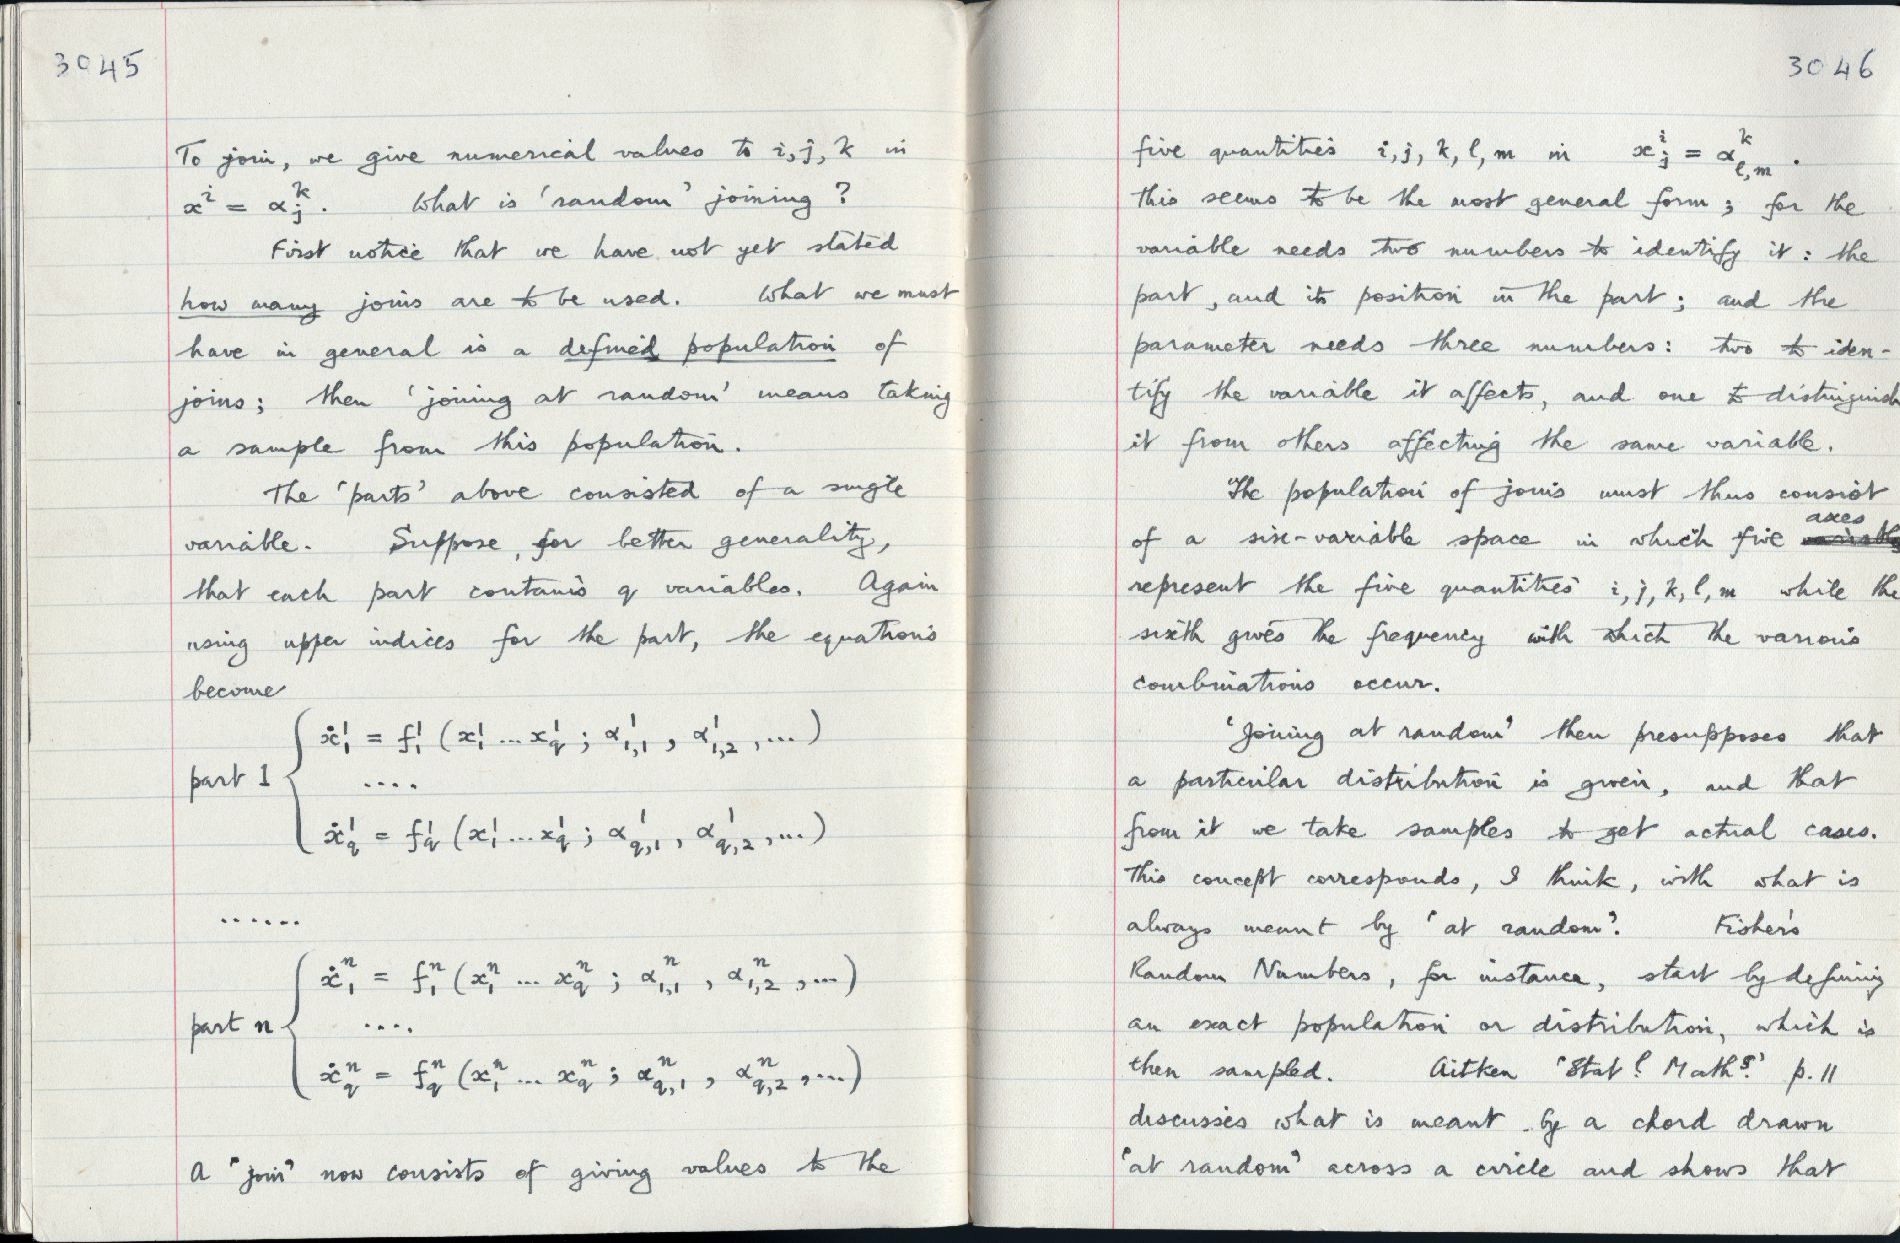 3045
To join, we give numerical values to i, j, k in
xⁱ = αⱼᵏ. What is 'random' joining?
First notice that we have not yet stated
how many joins are to be used. What we must
have in general is a defined population of
joins; then 'joining at random' means taking
a sample from this population.
The 'parts' above consisted of a single
variable. Suppose, for better generality,
that each part contains q variables. Again
using upper indices for the part, the equations
become
ẋ₁¹ = f₁¹ (x₁¹ ... x_q¹ ; α¹₁,₁ , α¹₁,₂ , ...)
part 1 { ....
ẋ_q¹ = f_q¹ (x₁¹ ... x_q¹ ; α¹_q,₁ , α¹_q,₂ , ...)
......
ẋ₁ⁿ = f₁ⁿ (x₁ⁿ ... x_qⁿ ; αⁿ₁,₁ , αⁿ₁,₂ , ...)
part n { ....
ẋ_qⁿ = f_qⁿ (x₁ⁿ ... x_qⁿ ; αⁿ_q,₁ , αⁿ_q,₂ , ...)
A "join" now consists of giving values to the
3046
five quantities i, j, k, l, m in xⱼⁱ = αᵏ_l,m .
this seems to be the most general form; for the
variable needs two numbers to identify it: the
part, and its position in the part; and the
parameter needs three numbers: two to iden-
tify the variable it affects, and one to distinguish
it from others affecting the same variable.
The population of joins must thus consist
of a six-variable space in which five axes
represent the five quantities i, j, k, l, m while the
sixth gives the frequency with which the various
combinations occur.
'Joining at random' then presupposes that
a particular distribution is given, and that
from it we take samples to get actual cases.
This concept corresponds, I think, with what is
always meant by 'at random'. Fisher's
Random Numbers, for instance, start by defining
an exact population or distribution, which is
then sampled. Aitken 'Statˡ. Mathˢ.' p. 11
discusses what is meant by a chord drawn
'at random' across a circle and shows that